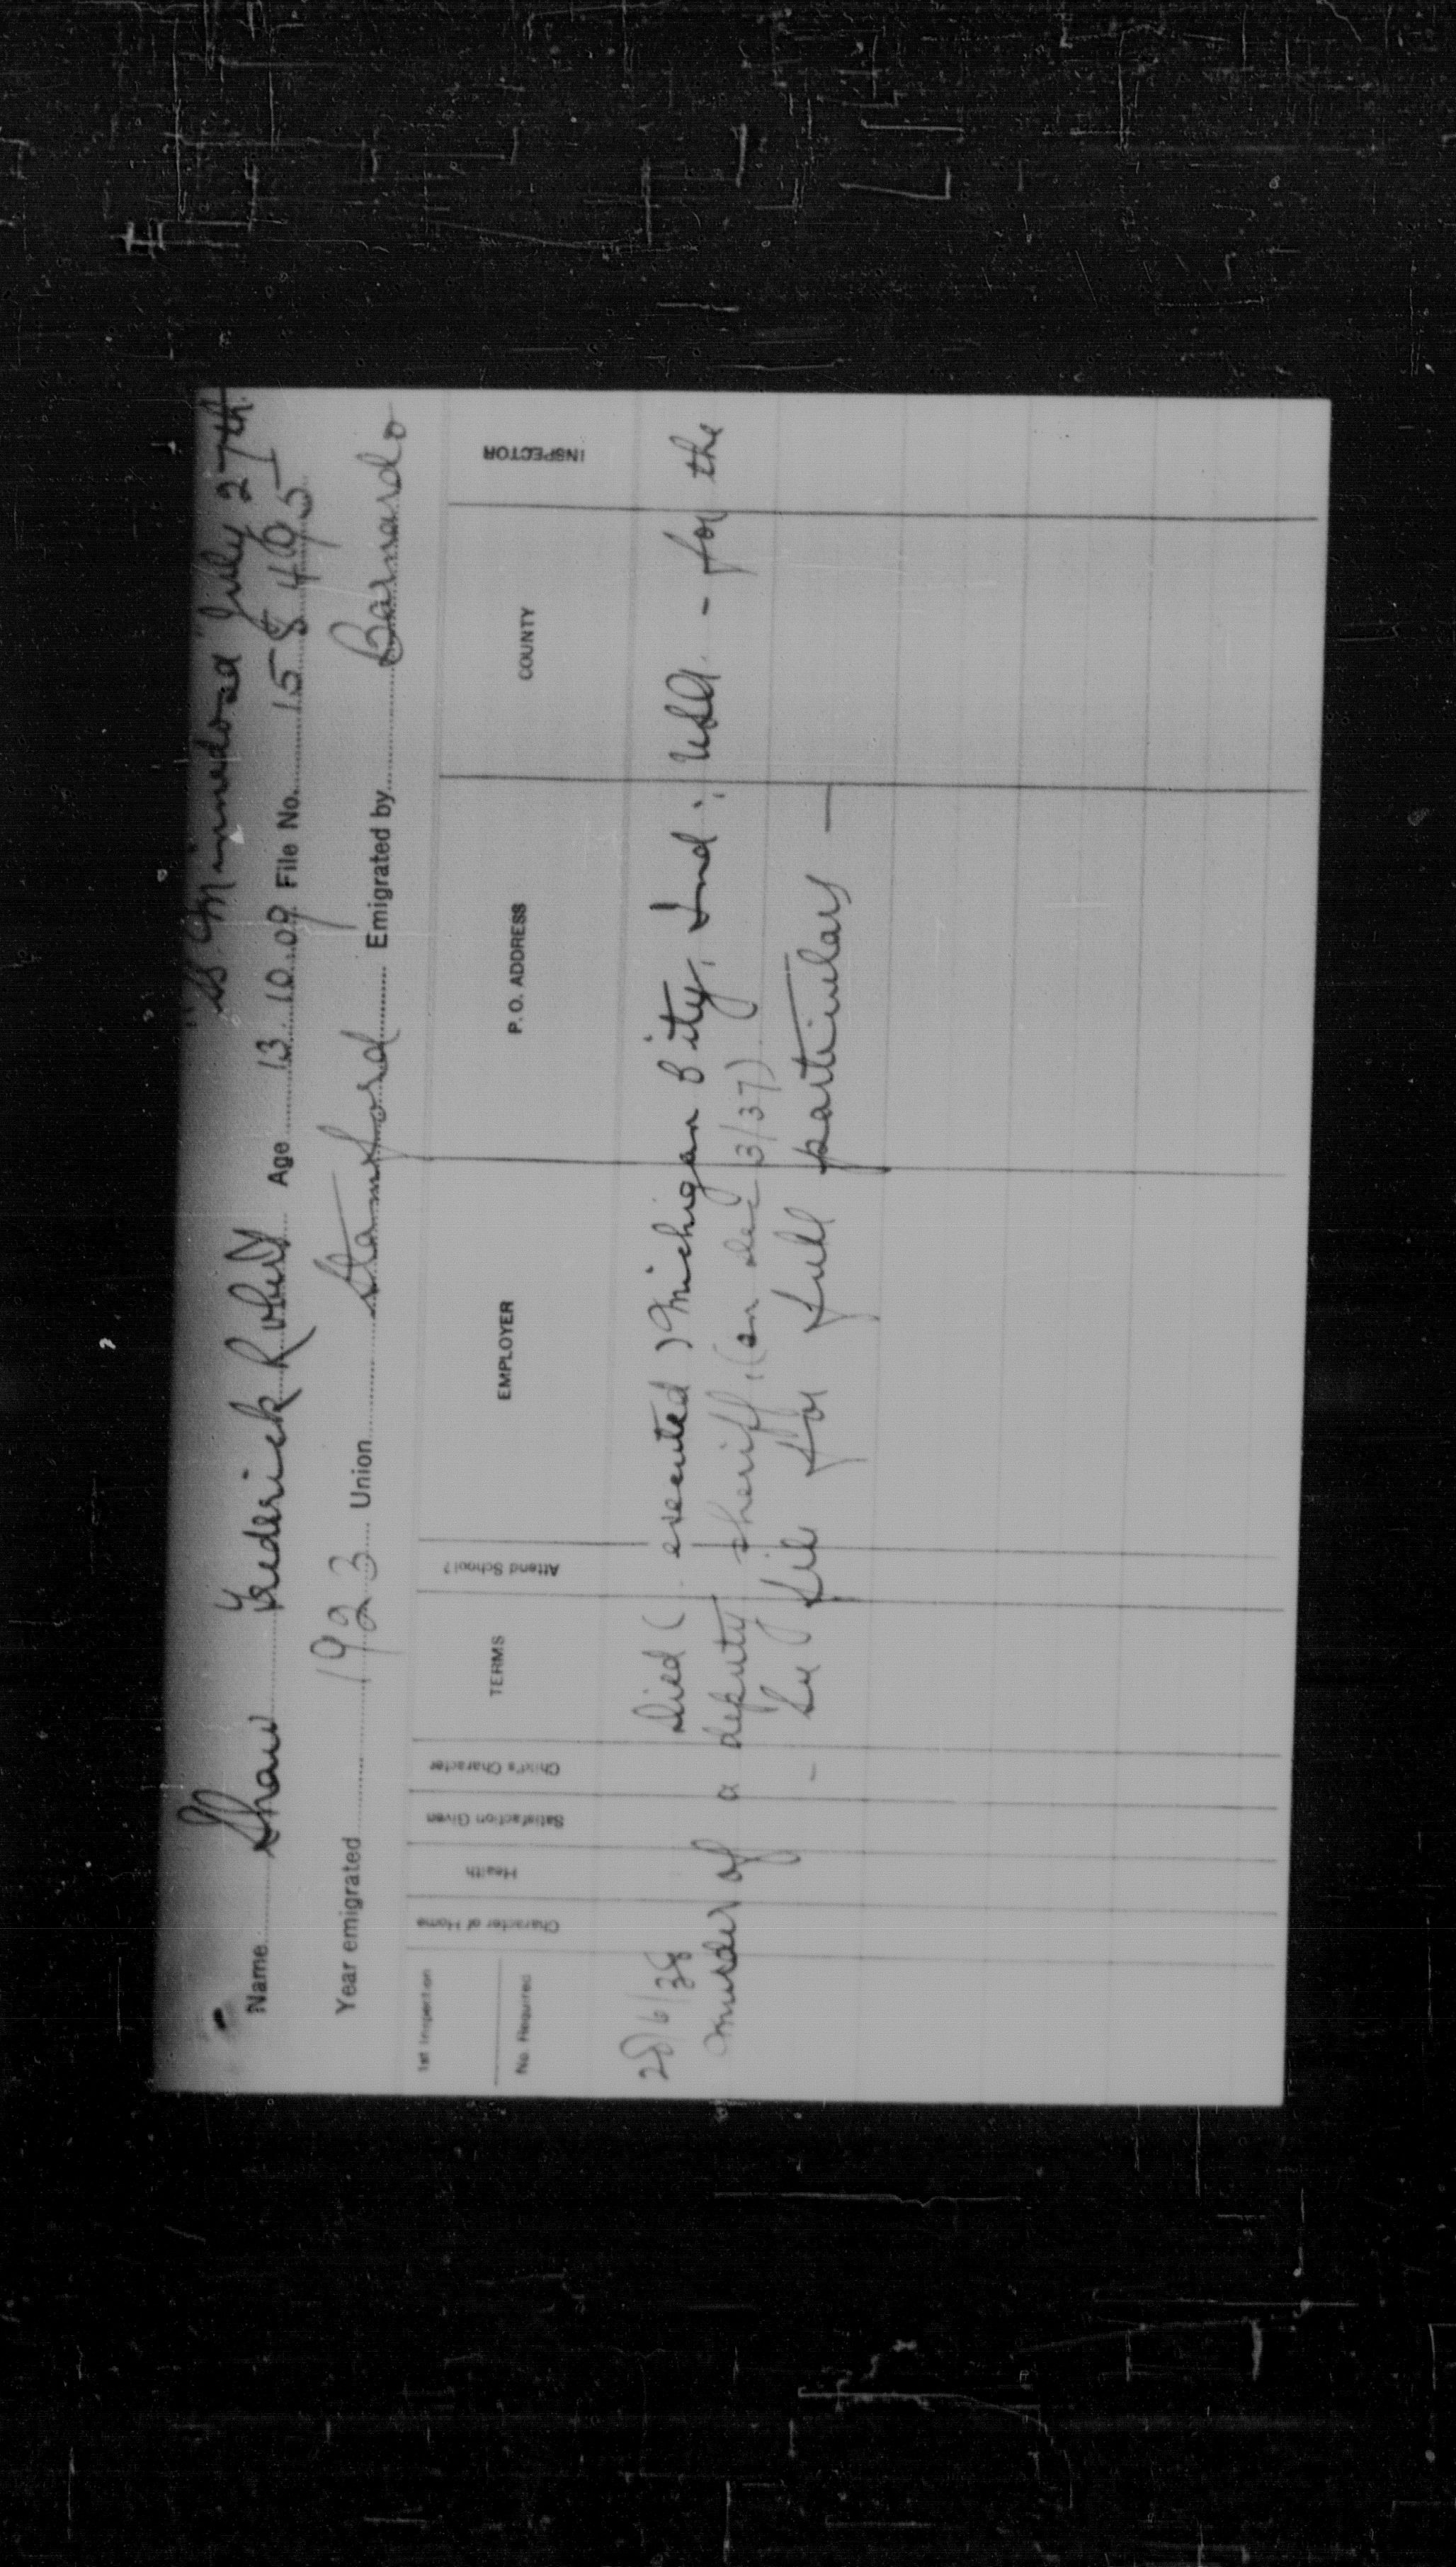 "SS Minnedosa" July 27th
Name Shaw Frederick Robert Age 13 10.09 File No. 158495
Year emigrated 1923 Union Stamford Emigrated by Barnardo
1st Inspection
No. Required
Character of Home
Health
Satisfaction Given
Child's Character
TERMS
Attend School?
EMPLOYER
P. O. ADDRESS
COUNTY
INSPECTOR
28/6/38 Died (executed) Michigan City, Ind., USA. - for the
murder of a deputy sheriff. (on dec 3/37)
- See file for full particulars -